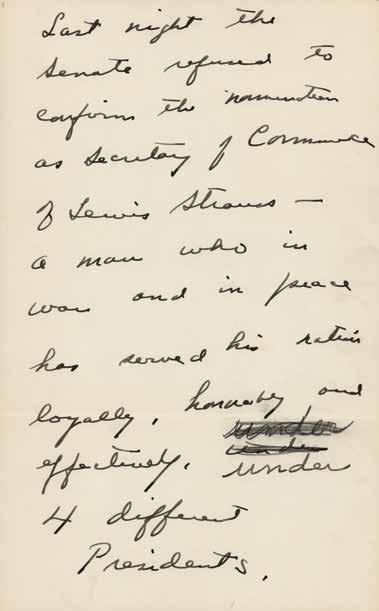 Last night the
Senate refused to
confirm the nomination
as Secretary of Commerce
of Lewis Strauss –
a man who in
war and in peace
has served his nation
loyally, honorably and
under
under
effectively, under
4 different
Presidents.